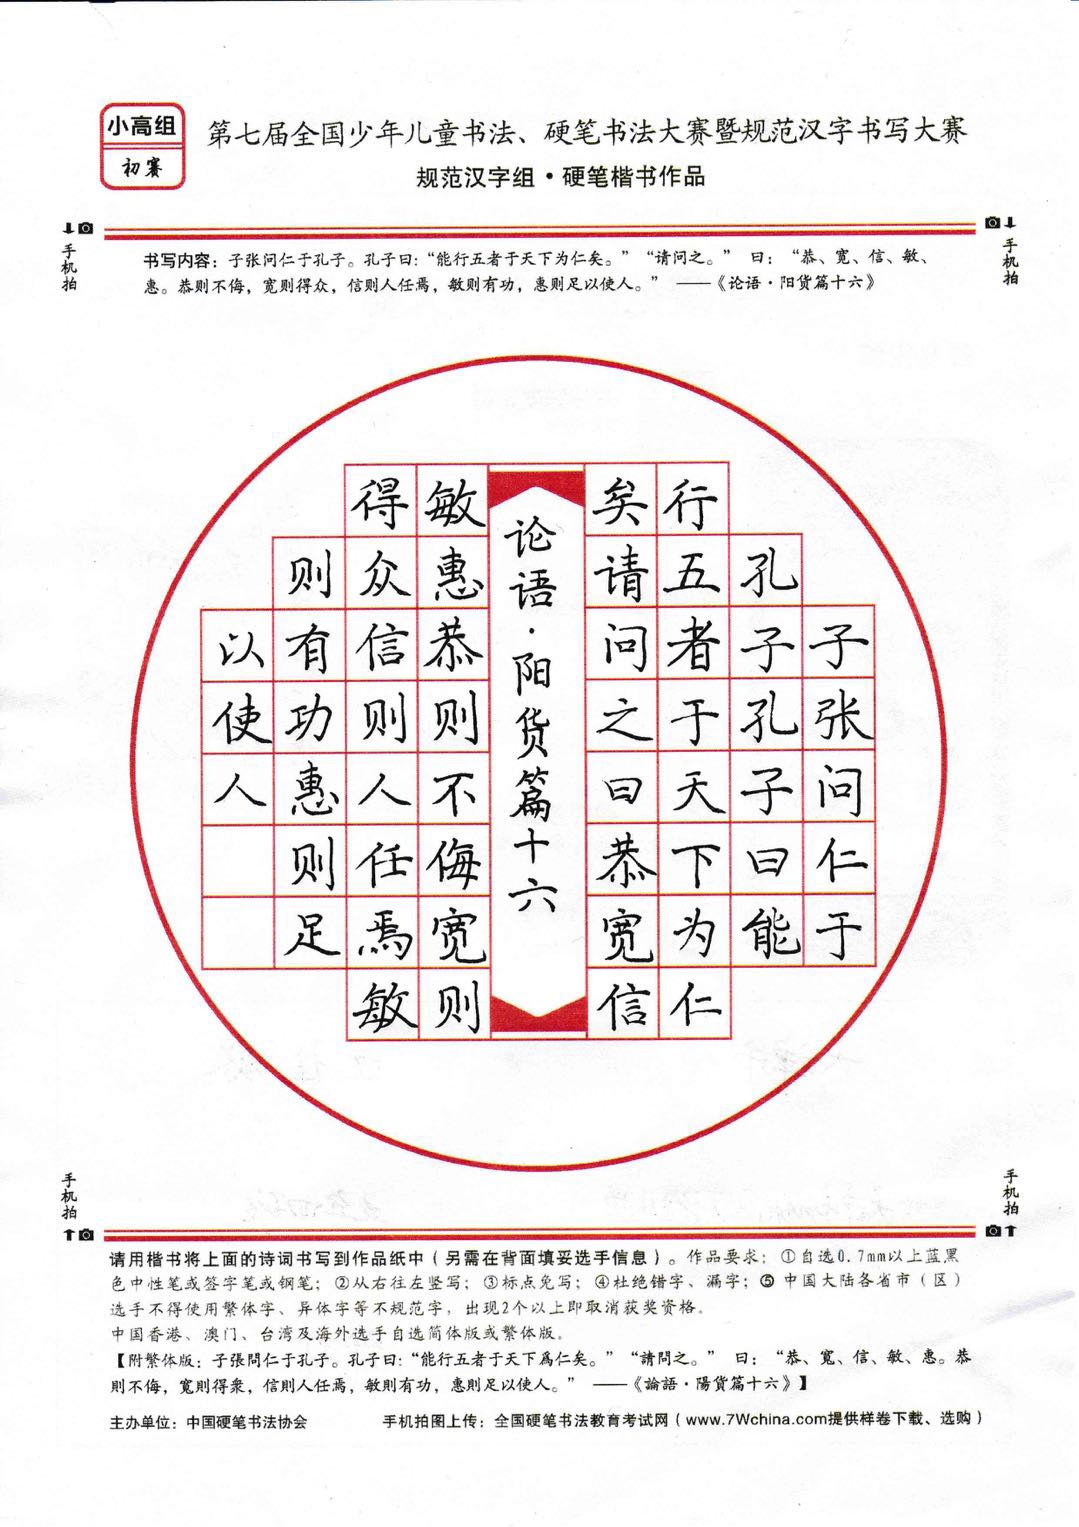 小高组
初赛
第七届全国少年儿童书法、硬笔书法大赛暨规范汉字书写大赛
规范汉字组·硬笔楷书作品
手机拍
手机拍
书写内容：子张问仁于孔子。孔子曰：“能行五者于天下为仁矣。”“请问之。” 曰：“恭、宽、信、敏、
惠。恭则不侮，宽则得众，信则人任焉，敏则有功，惠则足以使人。” ——《论语·阳货篇十六》
子张问仁于
孔子孔子曰能
行五者于天下为仁
矣请问之曰恭宽信
论语·阳货篇十六
敏惠恭则不侮宽则
得众信则人任焉敏
则有功惠则足
以使人
手机拍
手机拍
请用楷书将上面的诗词书写到作品纸中（另需在背面填妥选手信息）。作品要求：①自选0.7mm以上蓝黑
色中性笔或签字笔或钢笔；②从右往左竖写；③标点免写；④杜绝错字、漏字；⑤中国大陆各省市（区）
选手不得使用繁体字、异体字等不规范字，出现2个以上即取消获奖资格。
中国香港、澳门、台湾及海外选手自选简体版或繁体版。
【附繁体版：子張問仁于孔子。孔子曰：“能行五者于天下爲仁矣。”“請問之。” 曰：“恭、寬、信、敏、惠。恭
則不侮，寬則得衆，信則人任焉，敏則有功，惠則足以使人。” ——《論語·陽貨篇十六》】
主办单位：中国硬笔书法协会 手机拍图上传：全国硬笔书法教育考试网（www.7Wchina.com提供样卷下载、选购）